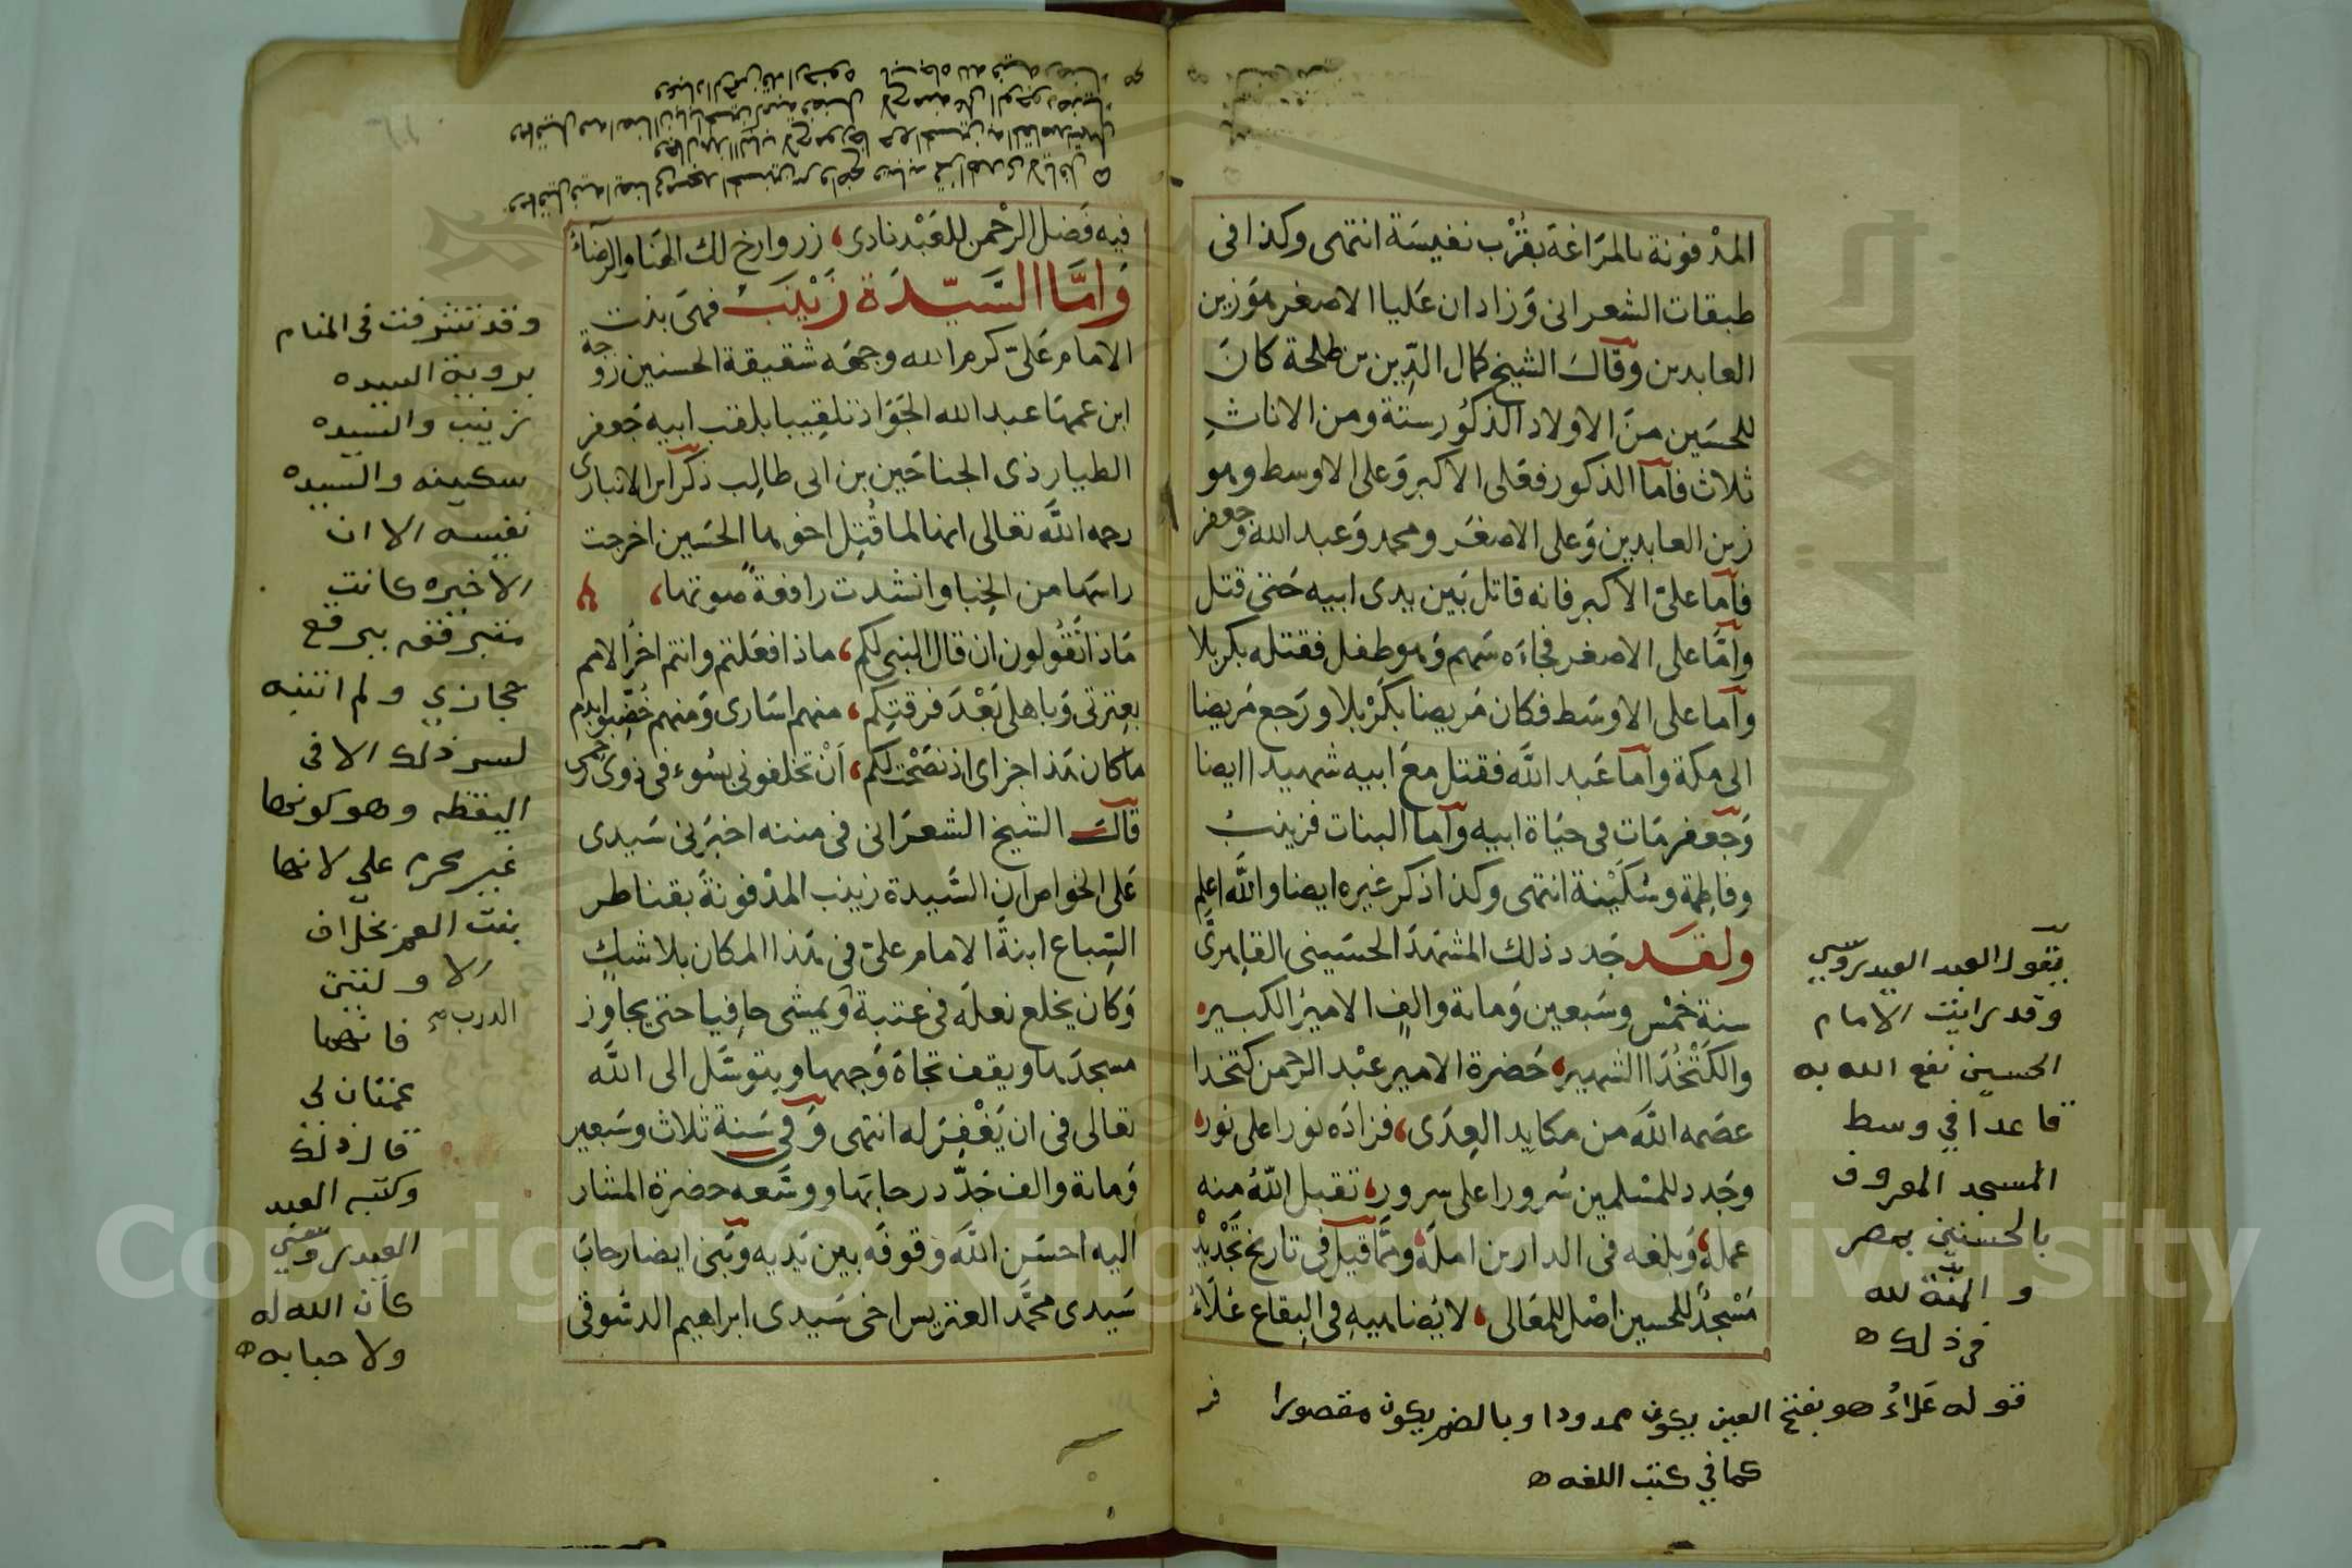 المدفونة بالمراغة بقرب نفيسة انتهى وكذا فى
طبقات الشعرانى وزاد ان عليا الاصغر هو زين
العابدين وقال الشيخ كمال الدين بن طلحة كان
للحسين من الاولاد الذكور ستة ومن الاناث
ثلاث فاما الذكور فعلى الاكبر وعلى الاوسط وهو
زين العابدين وعلى الاصغر ومحمد وعبد الله وجعفر
فاما على الاكبر فانه قاتل بين يدى ابيه حتى قتل
واما على الاصغر فجاءه سهم وهو طفل فقتله بكربلا
واما على الاوسط فكان مريضا بكربلا ورجع مريضا
الى مكة واما عبد الله فقتل مع ابيه شهيدا ايضا
وجعفر مات فى حياة ابيه واما البنات فزينب
وفاطمة وسكينة انتهى وكذا ذكر غيره ايضا والله اعلم
ولقد جدد ذلك المشهد الحسينى القاهرى
سنة خمس وسبعين ومائة والف الامير الكبير
والكتخدا الشهير حضرة الامير عبد الرحمن كتخدا
عصمه الله من مكايد العدى، فزاده نورا على نور
وجدد للمسلمين سرورا على سرور، تقبل الله منه
عمله، وبلغه فى الدارين امله، ومما قيل فى تاريخ تجديد
مسجد للحسين اصل المعالى، لا يضاهيه فى البقاع علاء
يقول العبد العيدروسي
وقد رايت الامام
الحسين نفع الله به
قاعدا في وسط
المسجد المعروف
بالحسنين بمصر
و المنة لله
في ذلك
قوله علاء هو بفتح العين يكون ممدودا وبالضم يكون مقصورا
كما في كتب اللغه
فيه
فيه فضل الرحمن للعبد نادى، زر وارخ لك الهنا والرضاء
واما السيدة زينب فهى بنت
الامام على كرم الله وجهه شقيقة الحسنين زوجة
ابن عمها عبد الله الجواد تلقيبا بلقب ابيه جعفر
الطيار ذى الجناحين بن ابى طالب ذكر ابن الانبارى
رحمه الله تعالى انها لما قتل اخوها الحسين اخرجت
راسها من الخبا وانشدت رافعة صوتها،
ماذا تقولون ان قال النبى لكم، ماذا فعلتم وانتم اخر الامم
بعترتى وباهلى بعد فرقتكم، منهم اسارى ومنهم خضبوا بدم
ما كان هذا جزاى اذ نصحت لكم، ان تخلفونى بسوء فى ذوى رحمى
قال الشيخ الشعرانى فى مننه اخبرنى سيدى
على الخواص ان السيدة زينب المدفونة بقناطر
السباع ابنة الامام على فى هذا المكان بلا شك
وكان يخلع نعله فى عتبة ويمشى حافيا حتى يجاوز
مسجدها ويقف تجاه وجهها ويتوسل الى الله
تعالى فى ان يغفر له انتهى وفى سنة ثلاث وسبعين
ومائة والف جدد رحابها ووسعه حضرة المشار
اليه احسن الله وقوفه بين يديه وبنى ايضا رحاب
سيدى محمد العتريس اخى سيدى ابراهيم الدسوقى
وقد تشرفت في المنام
بروية السيده
زينب والسيده
سكينه والسيده
نفيسه الا ان
الاخيره كانت
متبرقعه ببرقع
حجازي ولم انتبه
لسر ذلك الا في
اليقظه وهو كونها
غير محرم علي لانها
بنت العم بخلاف
الاولتين
فانهما
عمتان لي
قال ذلك
وكتبه العبد
العيدروسي
كان الله له
ولاحبابه